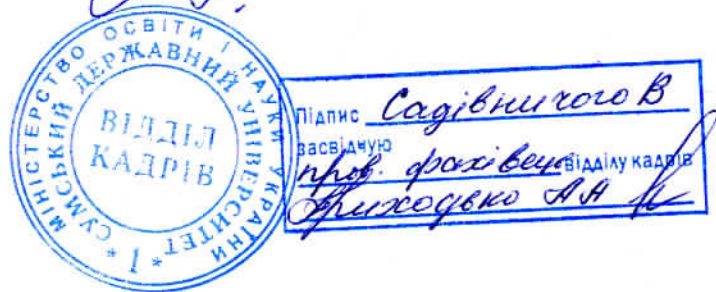 МІНІСТЕРСТВО ОСВІТИ І НАУКИ УКРАЇНИ
СУМСЬКИЙ ДЕРЖАВНИЙ УНІВЕРСИТЕТ
ВІДДІЛ
КАДРІВ
* 1 *
Підпис Садівничого В
засвідчую
пров. фахівець відділу кадрів
Приходько АА